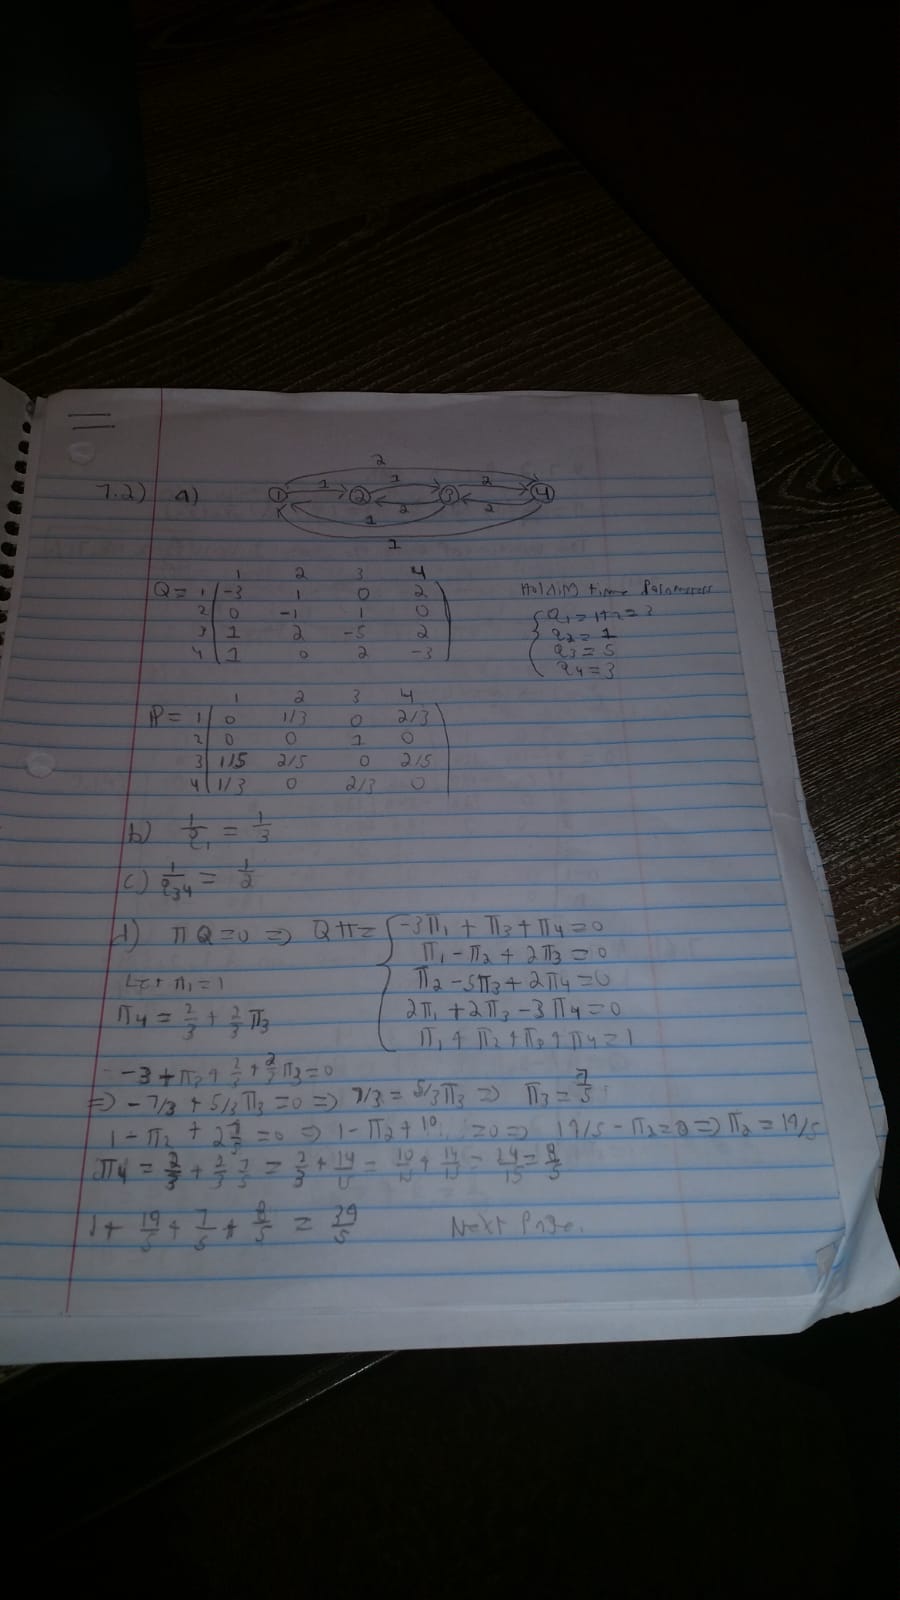 7.2) a)
2
1 1 2
1 2 3 4
1 2 2
1
1 2 3 4
Q = 1 -3 1 0 2
2 0 -1 1 0
3 1 2 -5 2
4 1 0 2 -3
time
q₁ = 1+2 = 3
q₂ = 1
q₃ = 5
q₄ = 3
1 2 3 4
P = 1 0 1/3 0 2/3
2 0 0 1 0
3 1/5 2/5 0 2/5
4 1/3 0 2/3 0
b) 1/q₁ = 1/3
c) 1/q₃₄ = 1/2
d) πQ=0 ⇒ Qπ= { -3π₁ + π₃ + π₄ = 0
π₁ - π₂ + 2π₃ = 0
π₂ - 5π₃ + 2π₄ = 0
2π₁ + 2π₃ - 3π₄ = 0
π₁ + π₂ + π₃ + π₄ = 1
Let π₁ = 1
π₄ = 2/3 + 2/3 π₃
-3 + π₃ + 2/3 + 2/3 π₃ = 0
⇒ -7/3 + 5/3 π₃ = 0 ⇒ 7/3 = 5/3 π₃ ⇒ π₃ = 7/5
1 - π₂ + 2 7/5 = 0 ⇒ 1 - π₂ + = 0 ⇒ 19/5 - π₂ = 0 ⇒ π₂ = 19/5
π₄ = 2/3 + 2/3 7/5 = 2/3 + 14/15 = 10/15 + 14/15 = 24/15 = 8/5
1 + 19/5 + 7/5 + 8/5 = 39/5 Next Page.